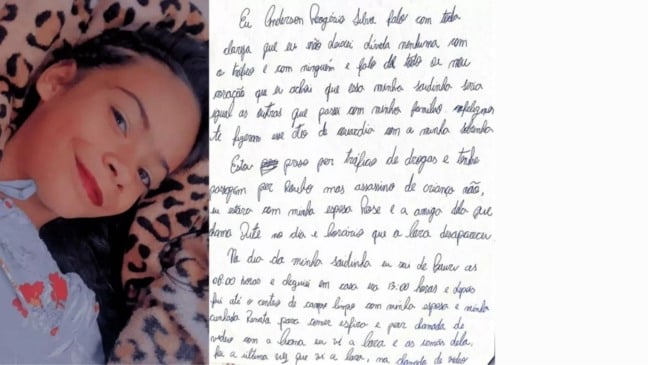 Eu Anderson Rogério Silva falo com toda
clareza que eu não deixei dívida nenhuma com
o tráfico e com ninguém e falo de todo o meu
coração que eu achei que essa minha saidinha seria
igual as outras que passei com minha família infelizmente
fizeram esse ato de covardia com a minha sobrinha
Estou preso por tráfico de drogas e tenho
passagem por Roubo mas assassino de criança não,
eu estava com minha esposa Rose e a amiga dela que
chama no dia e horário que a lara desapareceu
No dia da minha saidinha eu sai de Bauru as
08:00 horas e cheguei em casa as 13:00 horas e depois
fui até o centro de campo limpo com minha esposa e minha
cunhada Renata para comer esfirra e por chamada de
video com a luana eu vi a lara e as irmãs dela,
foi a ultima vez que vi a lara, na chamada de video